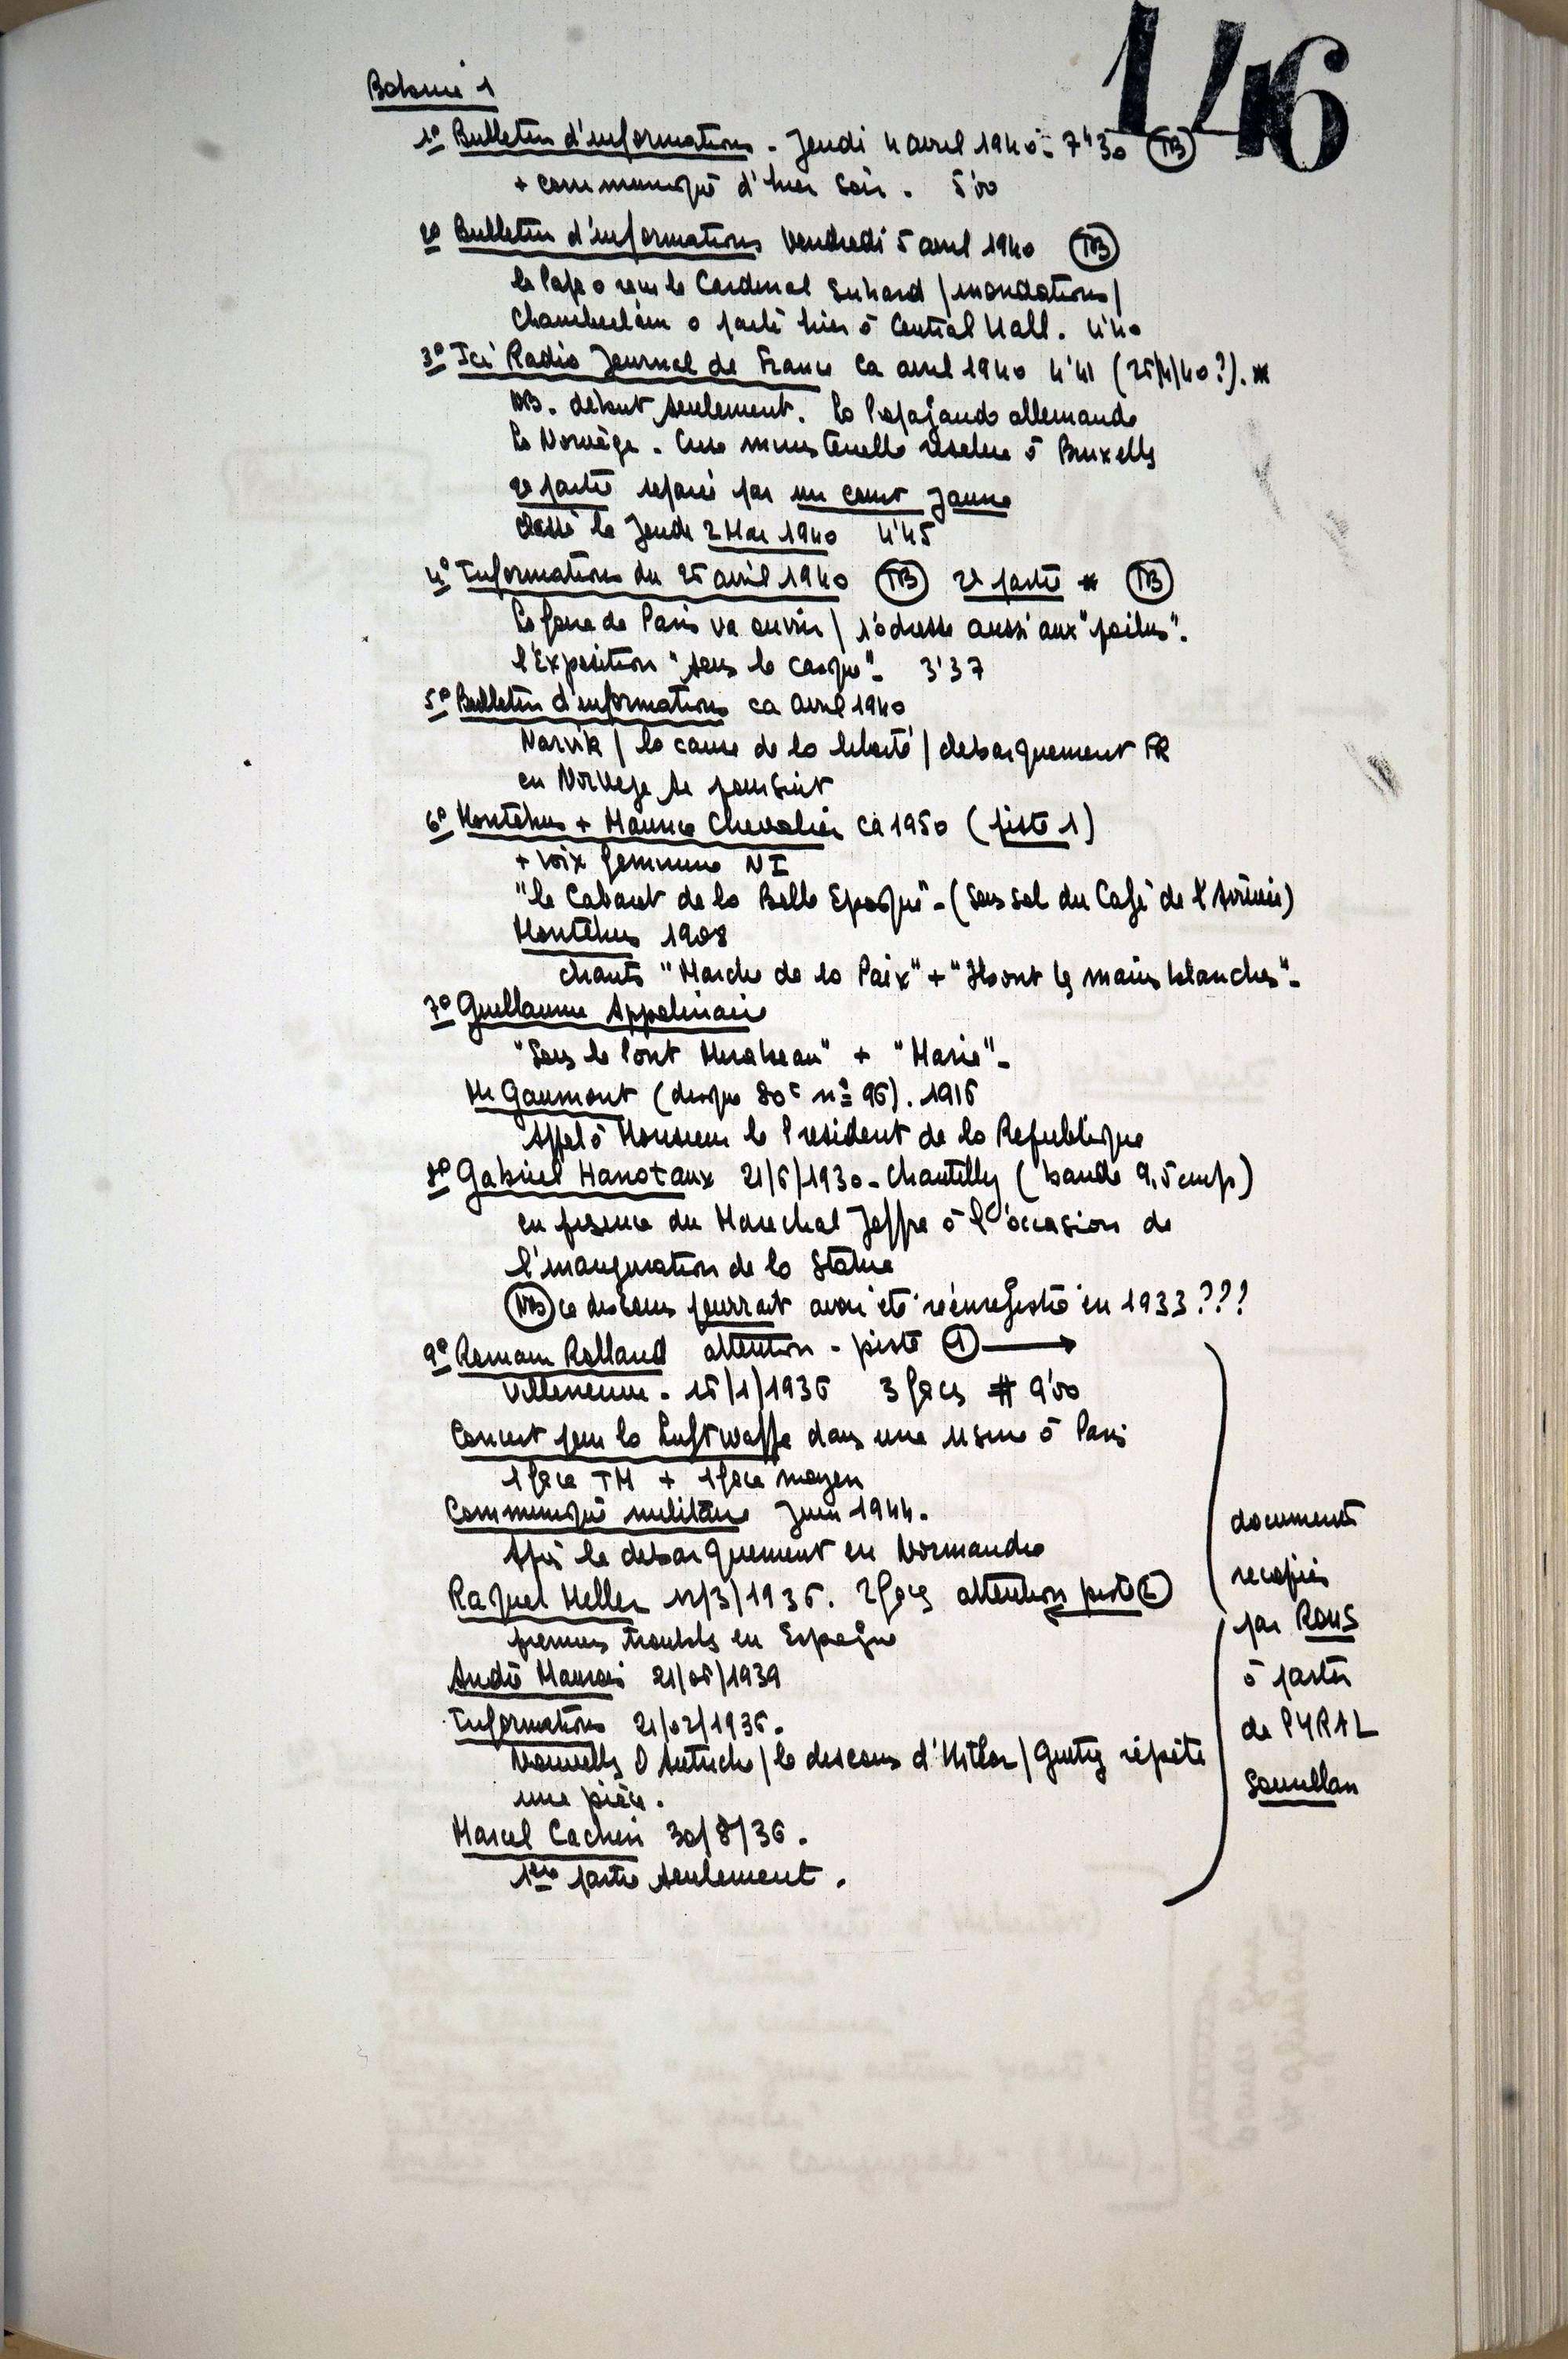 146
Bobine 1
1° Bulletin d'informations - Jeudi 4 avril 1940 - 7h30 (TB)
+ communiqué d'hier soir. 5'00
2° Bulletin d'informations Vendredi 5 avril 1940 (TB)
le Pape a reçu le Cardinal Suhard / inondations /
Chamberlain a parlé hier à Central Hall. 4'40
3° Ici Radio Journal de France Ca avril 1940 4'41 (25/4/40?). *
NB. début seulement. La Propagande allemande
La Norvège. Crise ministerielle résolue à Bruxelles
2e partie séparée par une amorce jaune
classé le Jeudi 2 Mai 1940 4'45
4° Informations du 25 avril 1940 (TB) 2e partie * (TB)
La foire de Paris va ouvrir / s'adresse aussi aux "poilus".
l'Exposition "sous le casque". 3'37
5° Bulletin d'informations ca avril 1940
Narvik / la cause de la liberté / debarquement FR
en Norvege se poursuit
6° Montéhus + Maurice Chevalier ca 1950 (piste 1)
+ voix feminine NI
"le Cabaret de la Belle Epoque" - (sous sol du Café de l'Armée)
Montéhus 1908
chants "Marche de la Paix" + "Ils ont les mains blanches" -
7° Guillaume Appolinaire
"Sous le Pont Mirabeau" + "Marie" -
Mr Gaumont (disque 80t n° 96). 1916
Appel à Monsieur le President de la Republique
8° Gabriel Hanotaux 21/6/1930 - Chantilly (bande 9,5 cm/s)
en presence du Marechal Joffre à l'occasion de
l'inauguration de la Statue
(NB) ce discours pourrait avoir été réenregistré en 1933 ???
9° Romain Rolland attention - piste (1) →
Villeneuve - 15/1/1936 3 faces # 9'00
Concert pour la Luftwaffe dans une usine à Paris
1 face TM + 1 face moyen
Communiqué militaire Juin 1944.
Après le debarquement en Normandie
Raquel Meller 12/3/1936. 2 faces attention piste (2)
premiers troubles en Espagne
André Maurois 21/06/1939
Informations 21/02/1936.
Nouvelles D'Autriche / le discours d'Hitler / Guitry répète
une pièce.
Marcel Cachin 30/8/36.
1ère partie seulement.
documents
recopiés
par ROUS
à partir
de PYRAL
Souillan